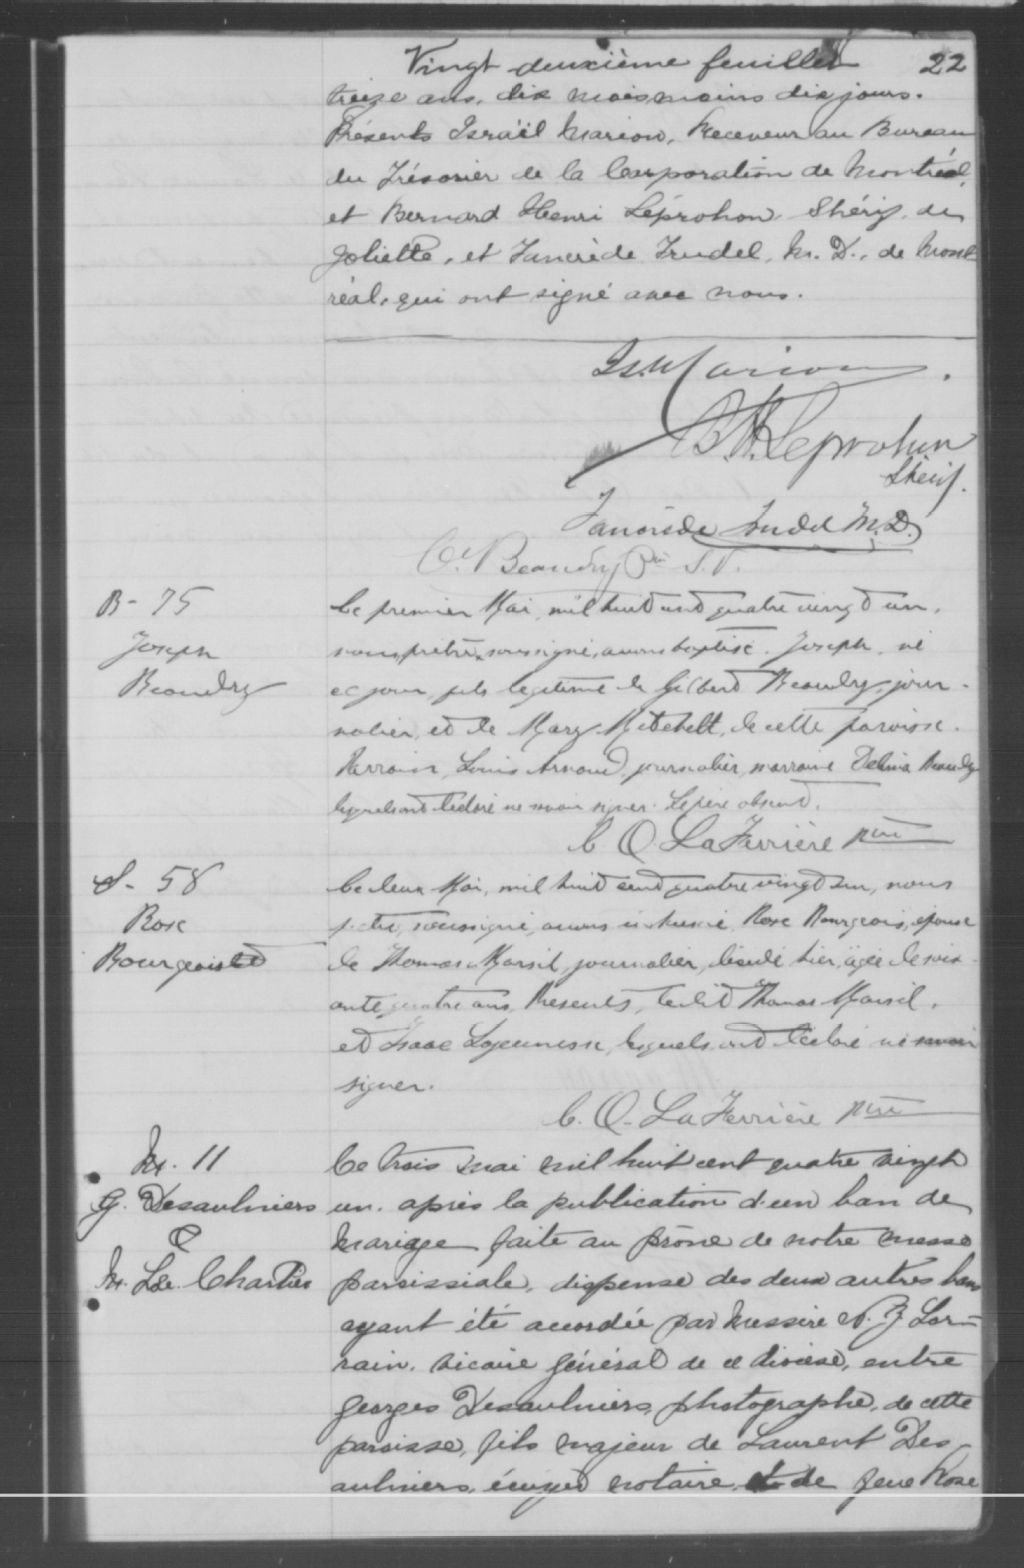 Vingt deuxième feuillet 22
treize ans, dix mois moins dix jours.
Présents Israël Marion, Receveur au Bureau
du Trésorier de la Corporation de Montréal,
et Bernard Henri Leprohon, Shérif, de
Joliette, et Tancrède Trudel, M. D., de Mont
réal, qui ont signé avec nous.
Is. Marion.
B. H. Leprohon
Shérif.
Tancrède Trudel M.D.
Beaudry Ptre
B - 75
Joseph
Beaudry
Ce premier Mai, mil huit cent quatre vingt un,
nous prêtre, soussigné, avons baptisé Joseph, né
ce jour, fils légitime de Gilbert Beaudry, jour-
nalier, et de Mary Mitchell, de cette paroisse.
Parrain, Louis Arnaud, journalier, marraine Delima Beaudry
lesquels ont déclaré ne savoir signer. Le père absent.
C. O. LaFerrière Ptre
S - 58
Rose
Bourgeois
Ce deux Mai, mil huit cent quatre vingt un, nous
prêtre, soussigné, avons inhumé Rose Bourgeois, épouse
de Thomas Marsil, journalier, décédé hier, âgée de soix-
ante quatre ans. Présents, le dit Thomas Marsil,
et Isaac Lajeunesse, lesquels ont déclaré ne savoir
signer.
C. O. LaFerrière Ptre
M. 11
G. Desaulniers
&
M. Lse. Chartier
Ce trois mai mil huit cent quatre vingt
un, après la publication d'un ban de
mariage faite au prône de notre messe
paroissiale, dispense des deux autres bans
ayant été accordée par Messire N. Z Lor-
rain, vicaire général de ce diocèse, entre
Georges Desaulniers, photographe, de cette
paroisse, fils majeur de Laurent Des
aulniers, écuyer notaire, et de feue Rose